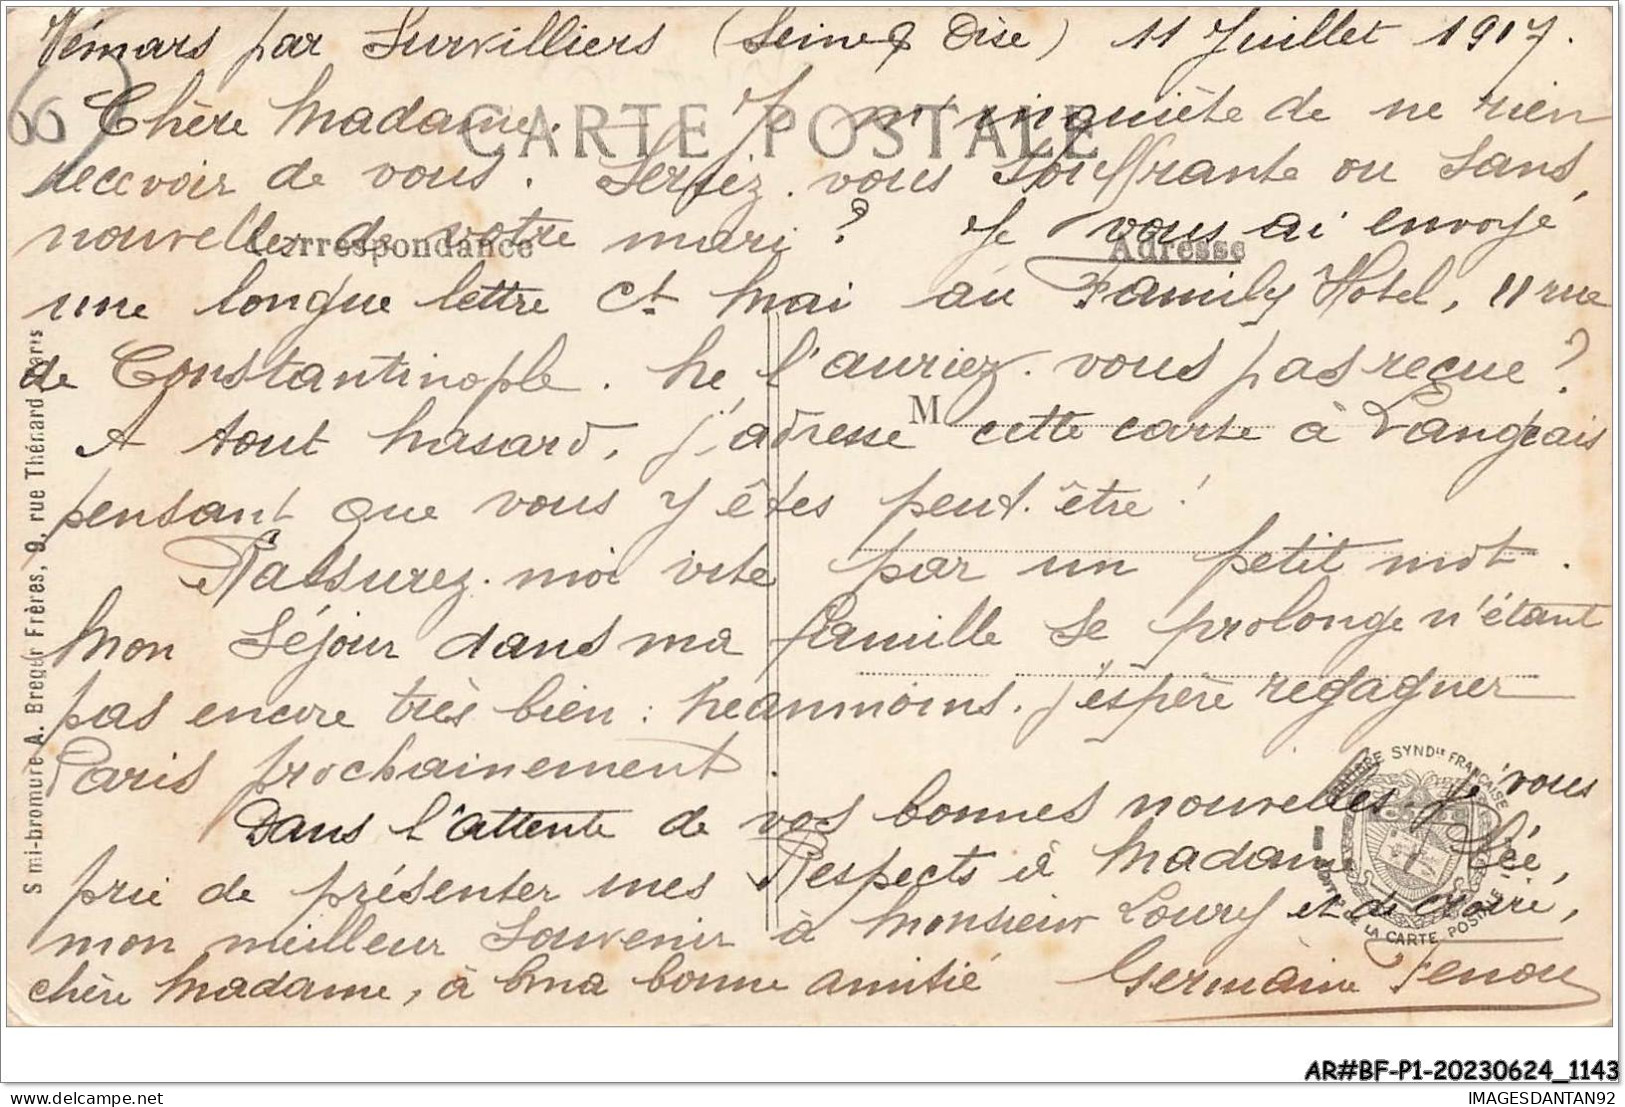 Vémars par Survilliers (Seine & Oise) 11 Juillet 1917.
60
CARTE POSTALE
Chère Madame. — Je m'inquiète de ne rien
recevoir de vous. Seriez-vous souffrante ou sans
nouvelles de votre mari ? Je vous ai envoyé
Correspondance
Adresse
une longue lettre ct Mai au Family Hotel, 11 rue
de Constantinople. Ne l'auriez-vous pas reçue ?
M
A tout hasard, j'adresse cette carte à Langeais
pensant que vous y êtes peut-être !
Rassurez-moi vite par un petit mot.
Mon séjour dans ma famille se prolonge n'étant
pas encore très bien : néanmoins j'espère regagner
Paris prochainement.
Dans l'attente de vos bonnes nouvelles, je vous
prie de présenter mes Respects à Madame
mon meilleur souvenir à Monsieur Loury et de croire,
chère Madame, à ma bonne amitié Germaine
Semi-bromure A. Breger Frères, 9, rue Thénard Paris
CHAMBRE SYND.LE FRANÇAISE DE LA CARTE POSTALE
AR#BF-P1-20230624_1143
IMAGESDANTAN92